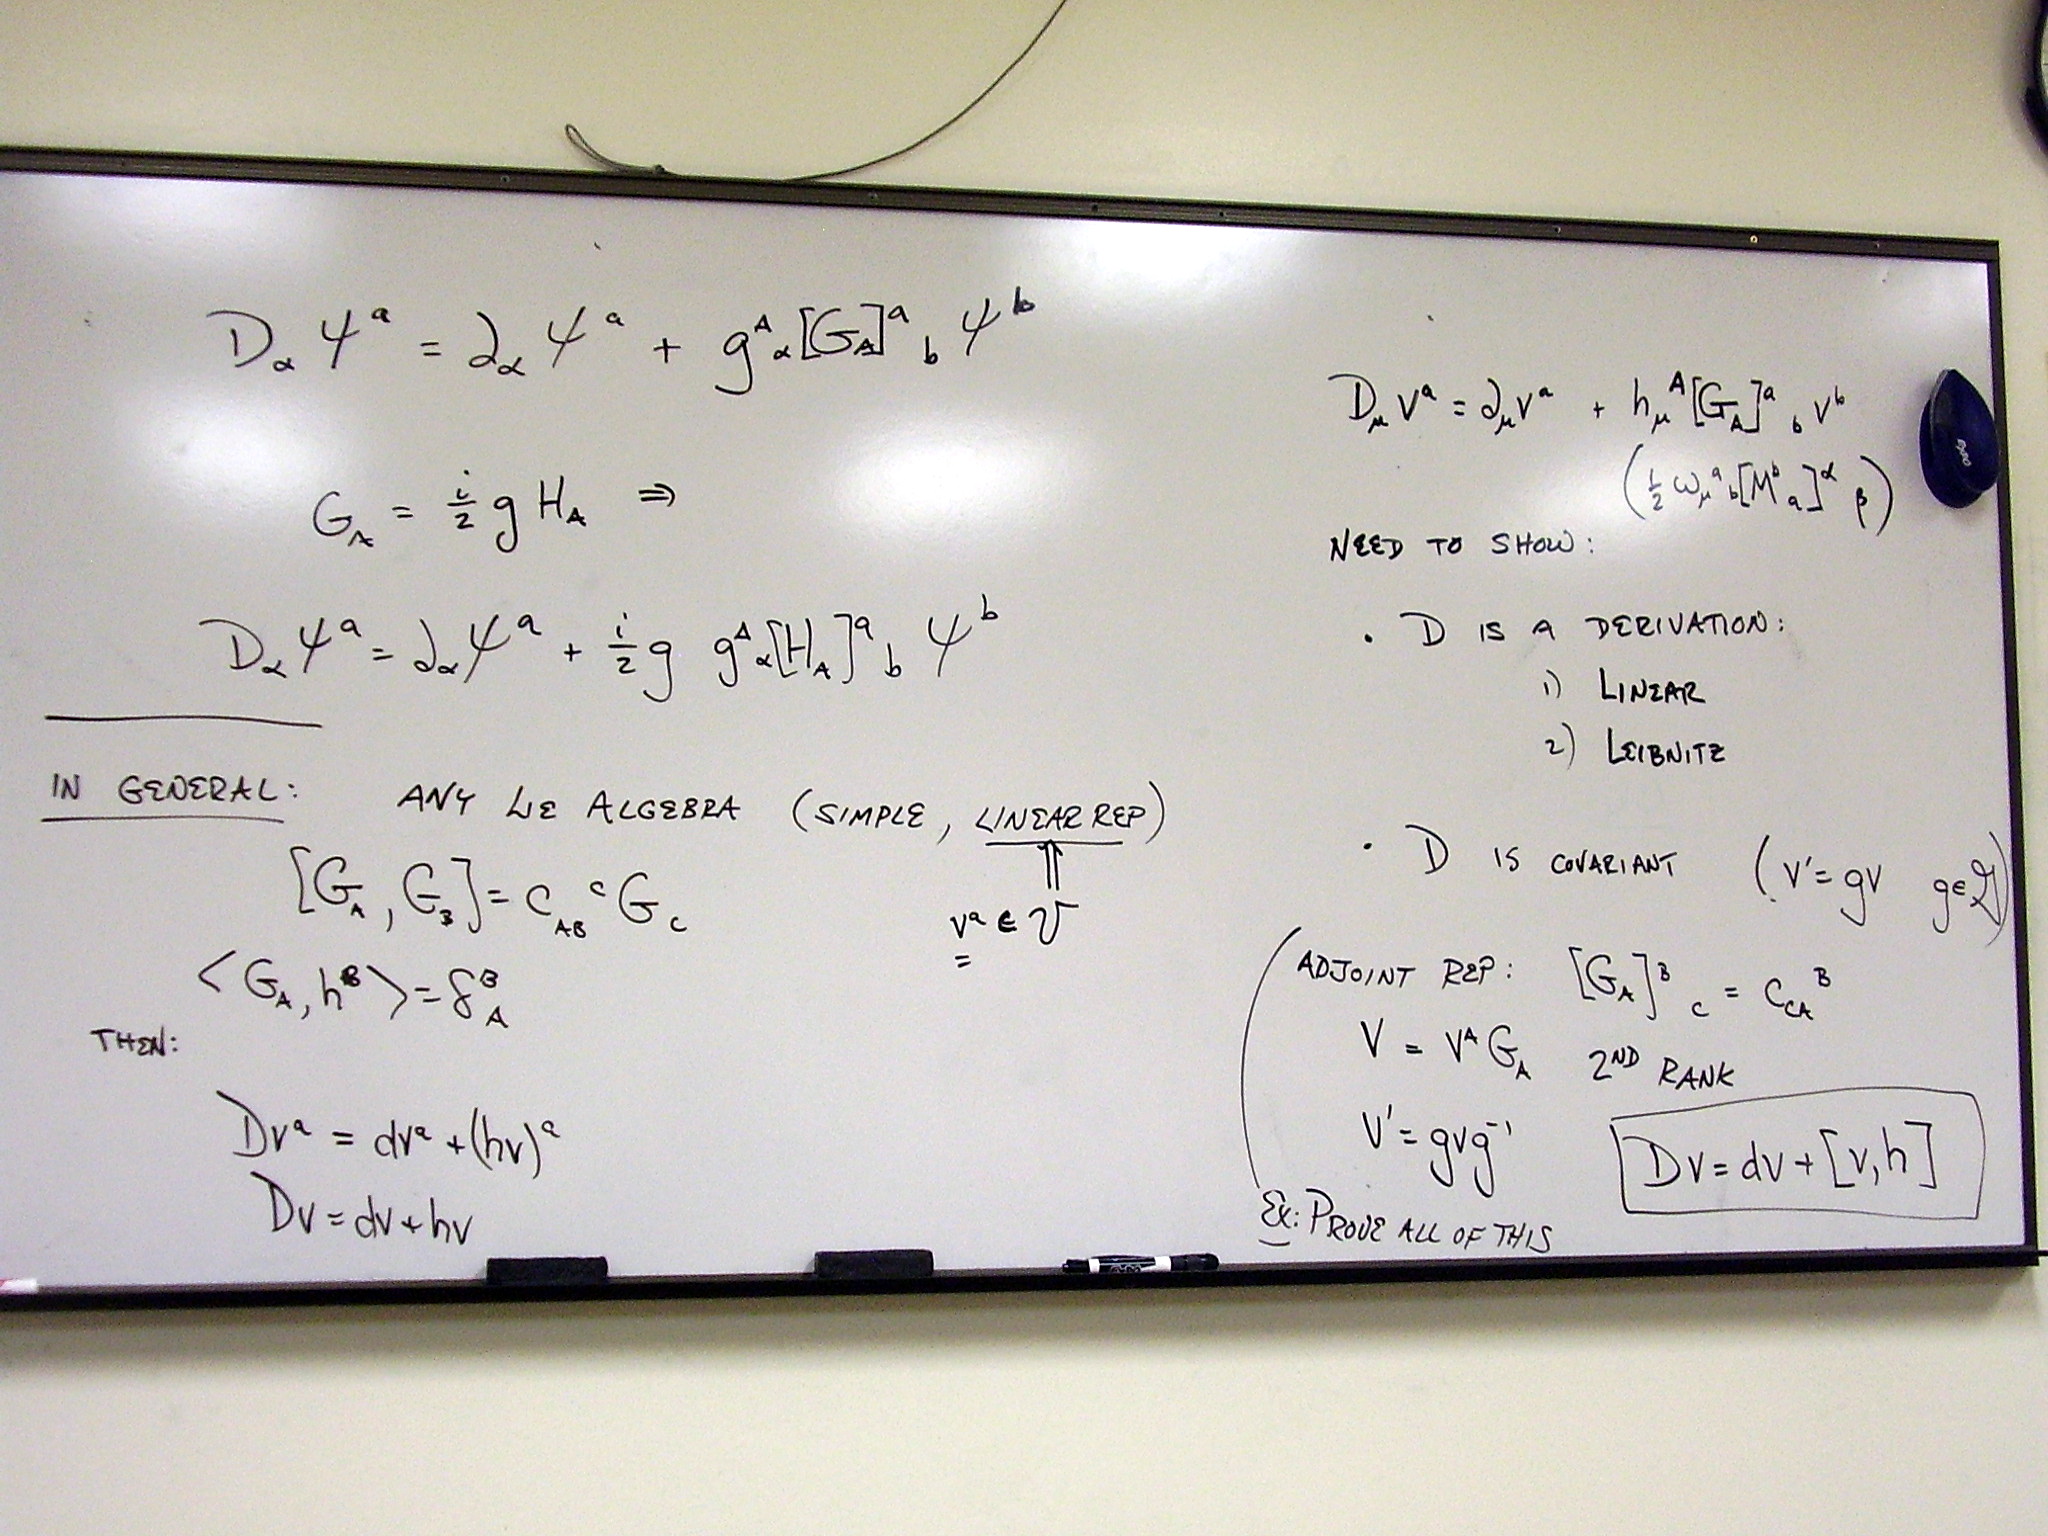 D_α ψ^a = ∂_α ψ^a + g^A_α [G_A]^a_b ψ^b
G_A = i/2 g H_A ⇒
D_α ψ^a = ∂_α ψ^a + i/2 g g^A_α [H_A]^a_b ψ^b
IN GENERAL: ANY LIE ALGEBRA (SIMPLE, LINEAR REP)
⇑
[G_A, G_B] = c_AB^C G_C
v^a ∈ V
=
<G_A, h^B> = δ^B_A
THEN:
Dv^a = dv^a + (hv)^a
Dv = dv + hv
D_μ v^a = ∂_μ v^a + h_μ^A [G_A]^a_b v^b
(1/2 ω_μ^a_b [M^b_a]^α_β)
NEED TO SHOW:
• D IS A DERIVATION:
1) LINEAR
2) LEIBNITZ
• D IS COVARIANT (v' = gv g ∈ G)
ADJOINT REP: [G_A]^B_C = c_CA^B
V = v^A G_A 2ND RANK
V' = gvg^-1
Dv = dv + [v, h]
Ex: PROVE ALL OF THIS